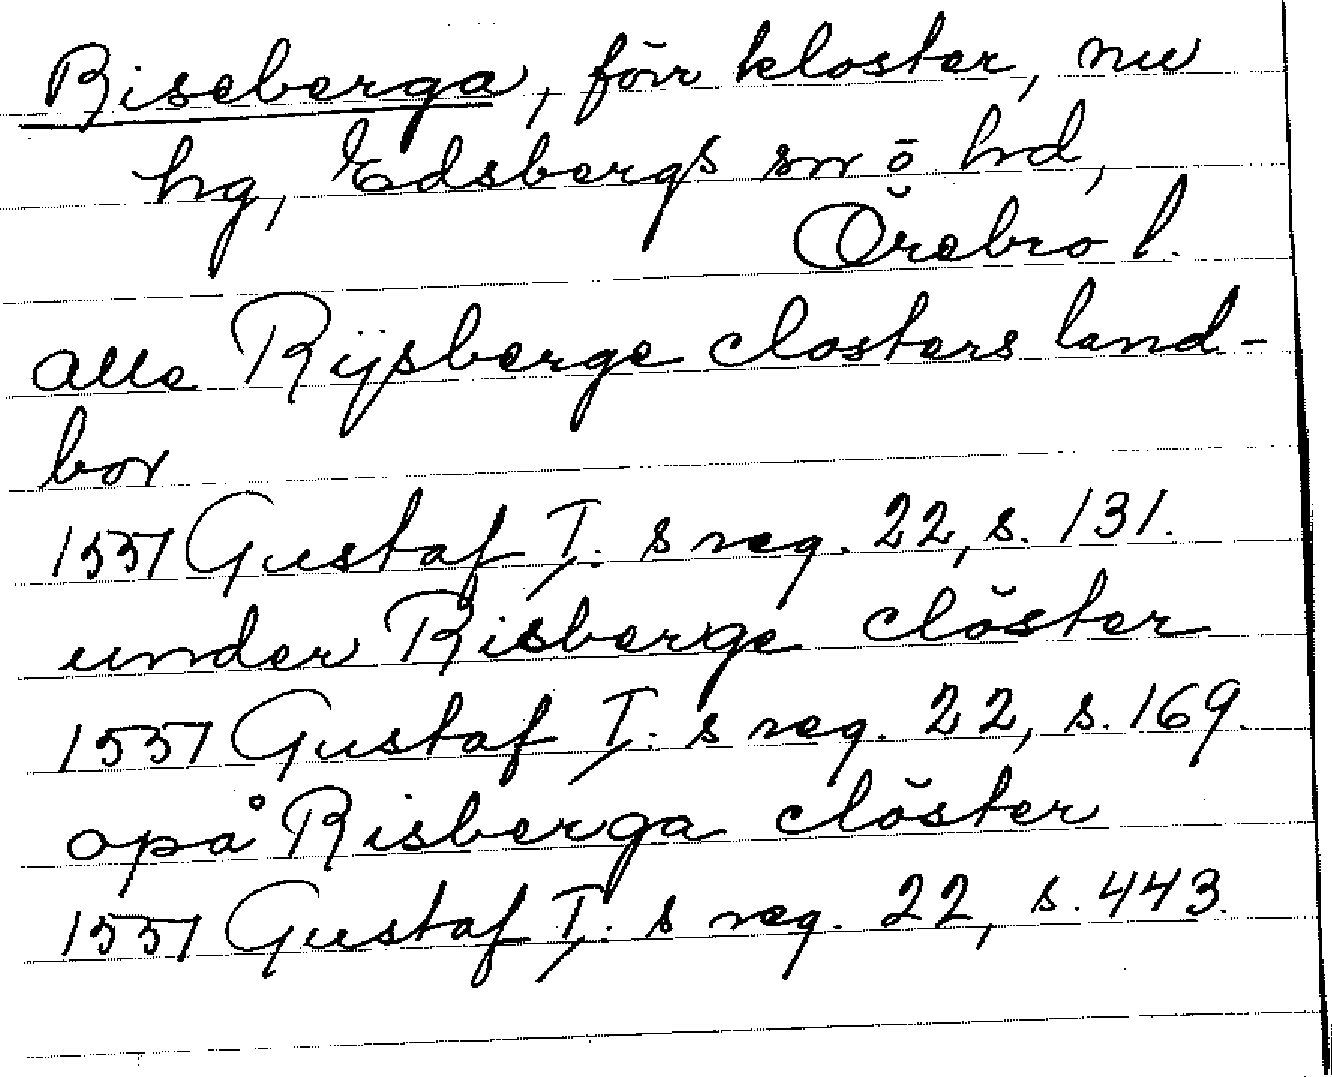 Riseberga, förr kloster, nu
hg, Edsbergs sn o hd,
Örebro l.
alla Rijsberge closters land-
bor
1551 Gustaf I:s reg. 22, s. 131.
under Risberge clöster
1551 Gustaf I:s reg. 22, s. 169.
opå Risberga clöster
1551 Gustaf I:s reg. 22, s. 443.